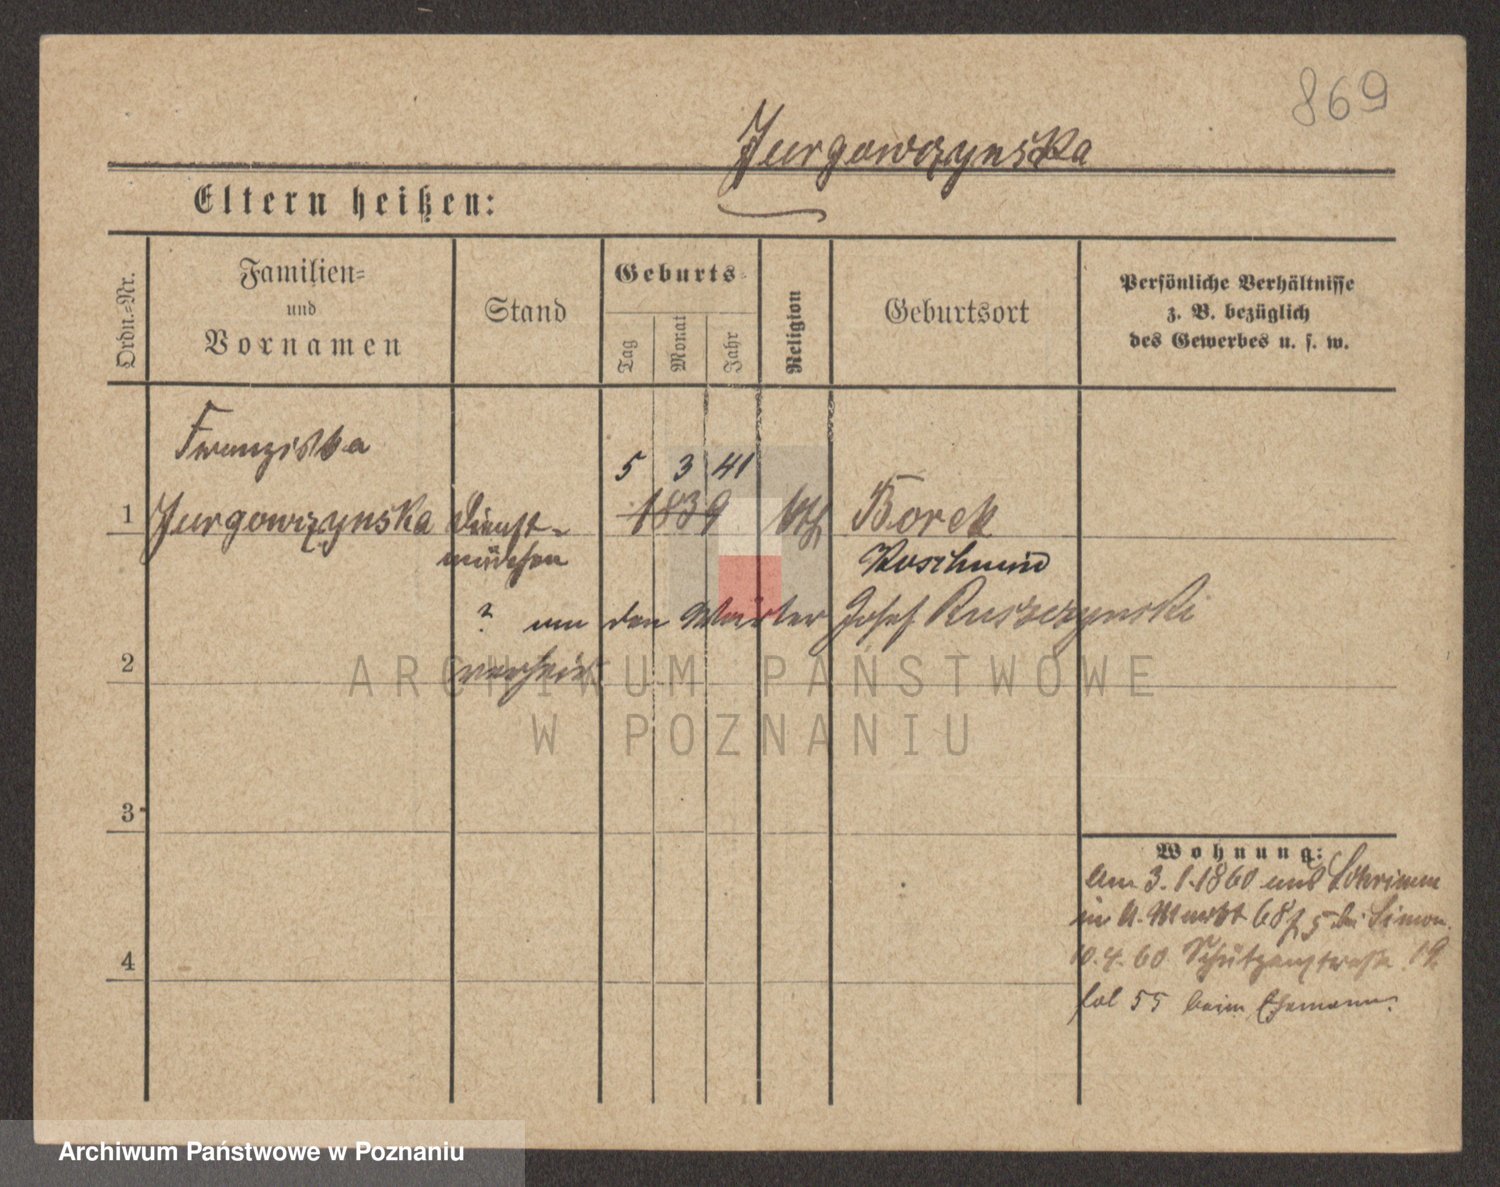 869
Jurgowczynska
Eltern heißen:
Ordn.-Nr.
Familien-
und
Vornamen
Stand
Geburts-
Tag
Monat
Jahr
Religion
Geburtsort
Persönliche Verhältnisse
z. B. bezüglich
des Gewerbes u. s. w.
Franziska
5 3 41
1 Jurgowczynska Dienst- 1839 kth Borek
mädchen Koschmin
? an den Wärter Josef Ruszczynski
2 verheir
ARCHIWUM PAŃSTWOWE
W POZNANIU
3
Wohnung:
Am 3. 1. 1860 aus Schrimm
in A. Markt 68 5 bei Simon
4 10. 4. 60 Schützenstraße 19
fol 55 beim Ehemann.
Archiwum Państwowe w Poznaniu